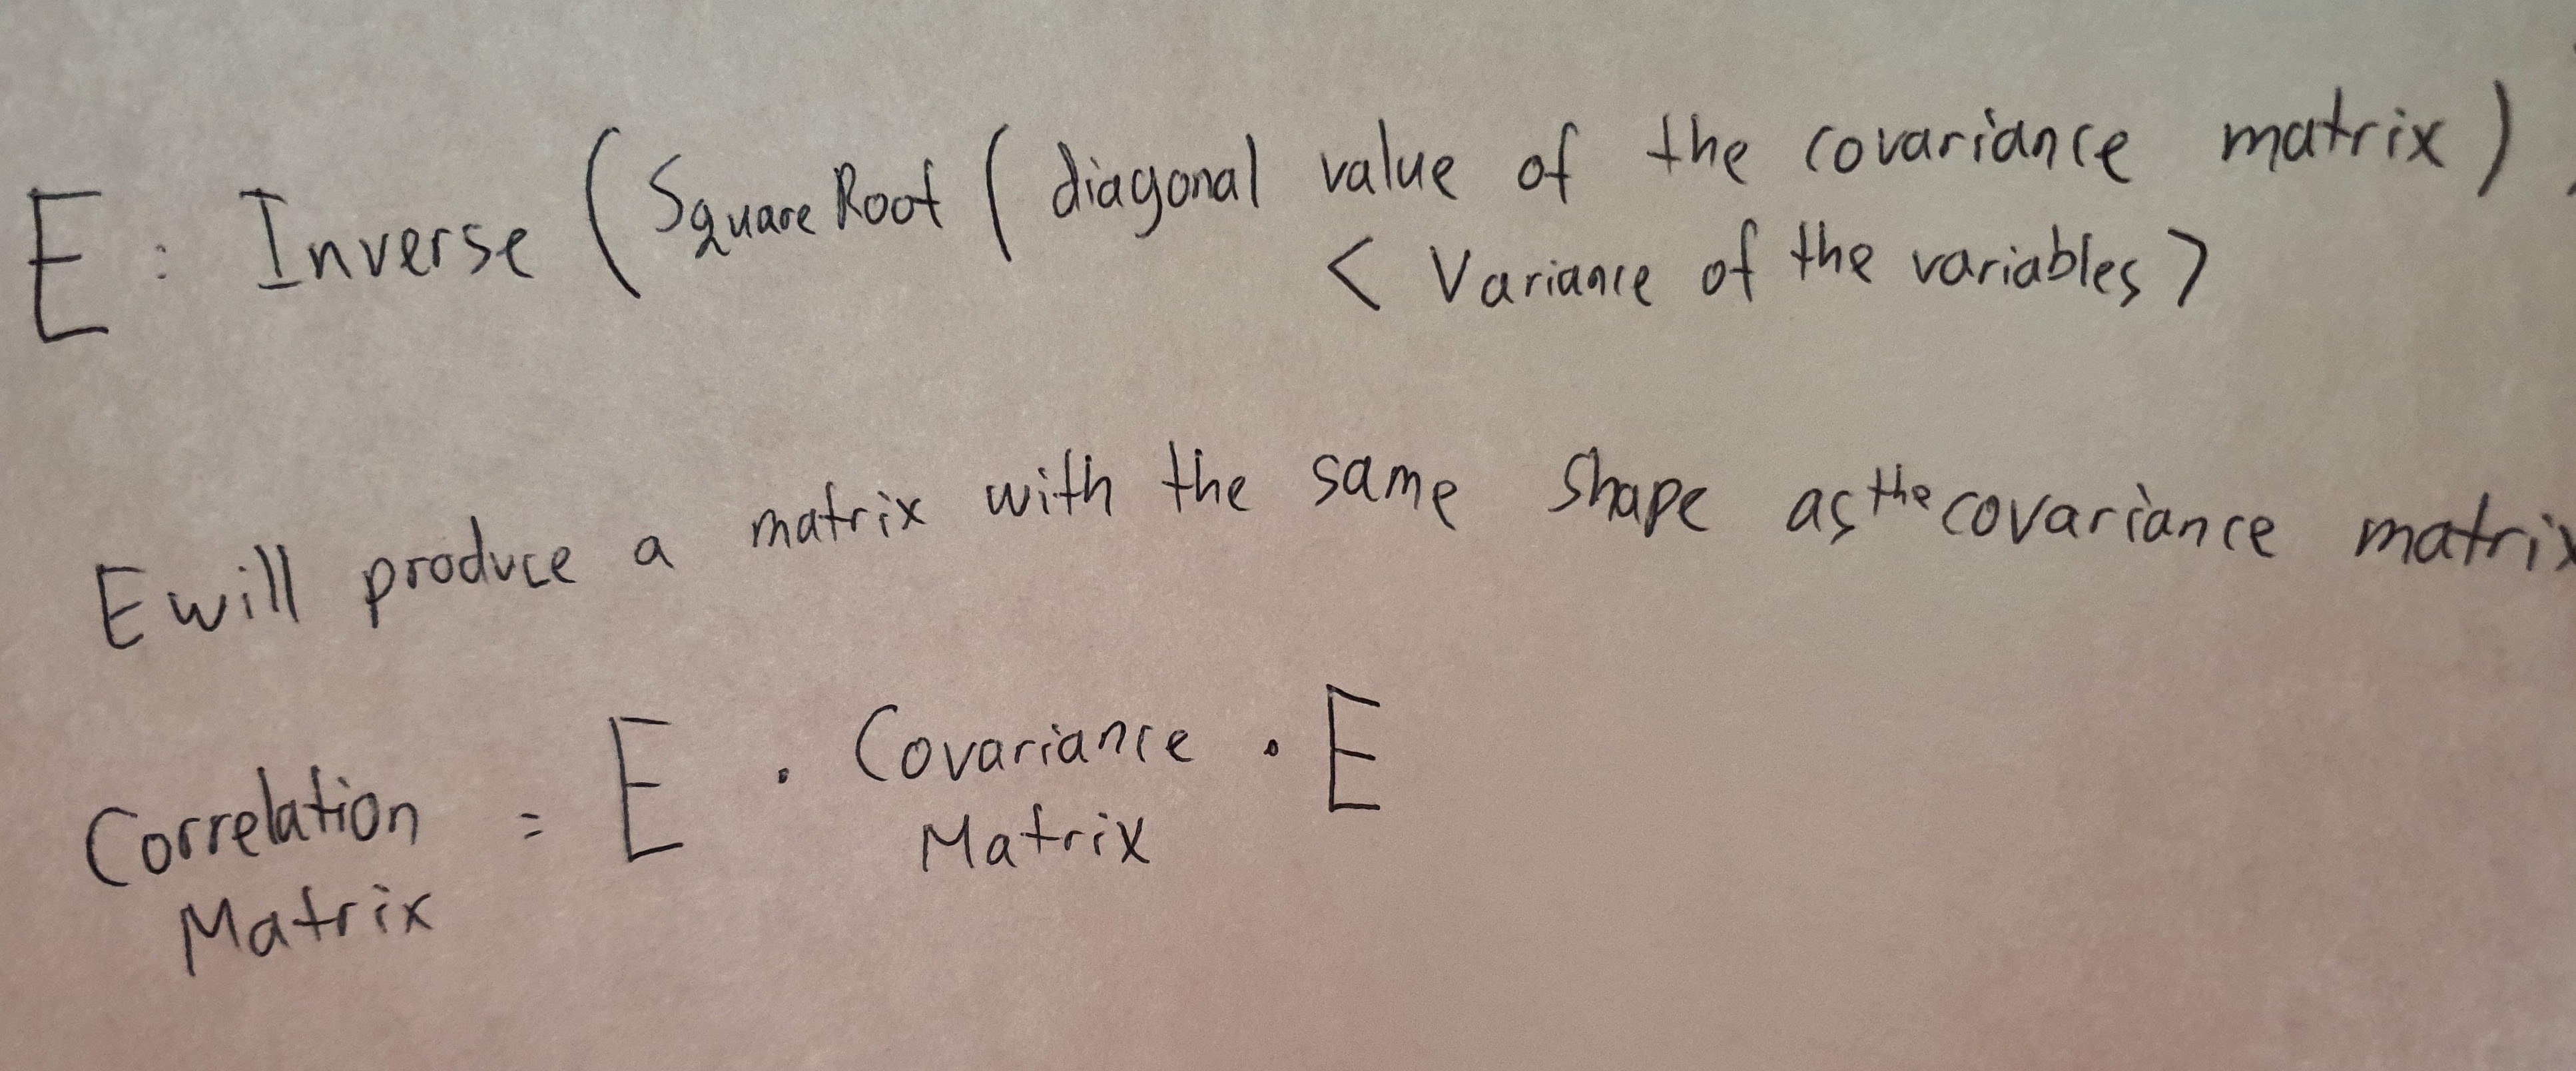 E : Inverse (Square Root ( diagonal value of the covariance matrix )
< Variance of the variables >
E will produce a matrix with the same shape as the covariance matrix
Correlation Matrix = E . Covariance Matrix . E